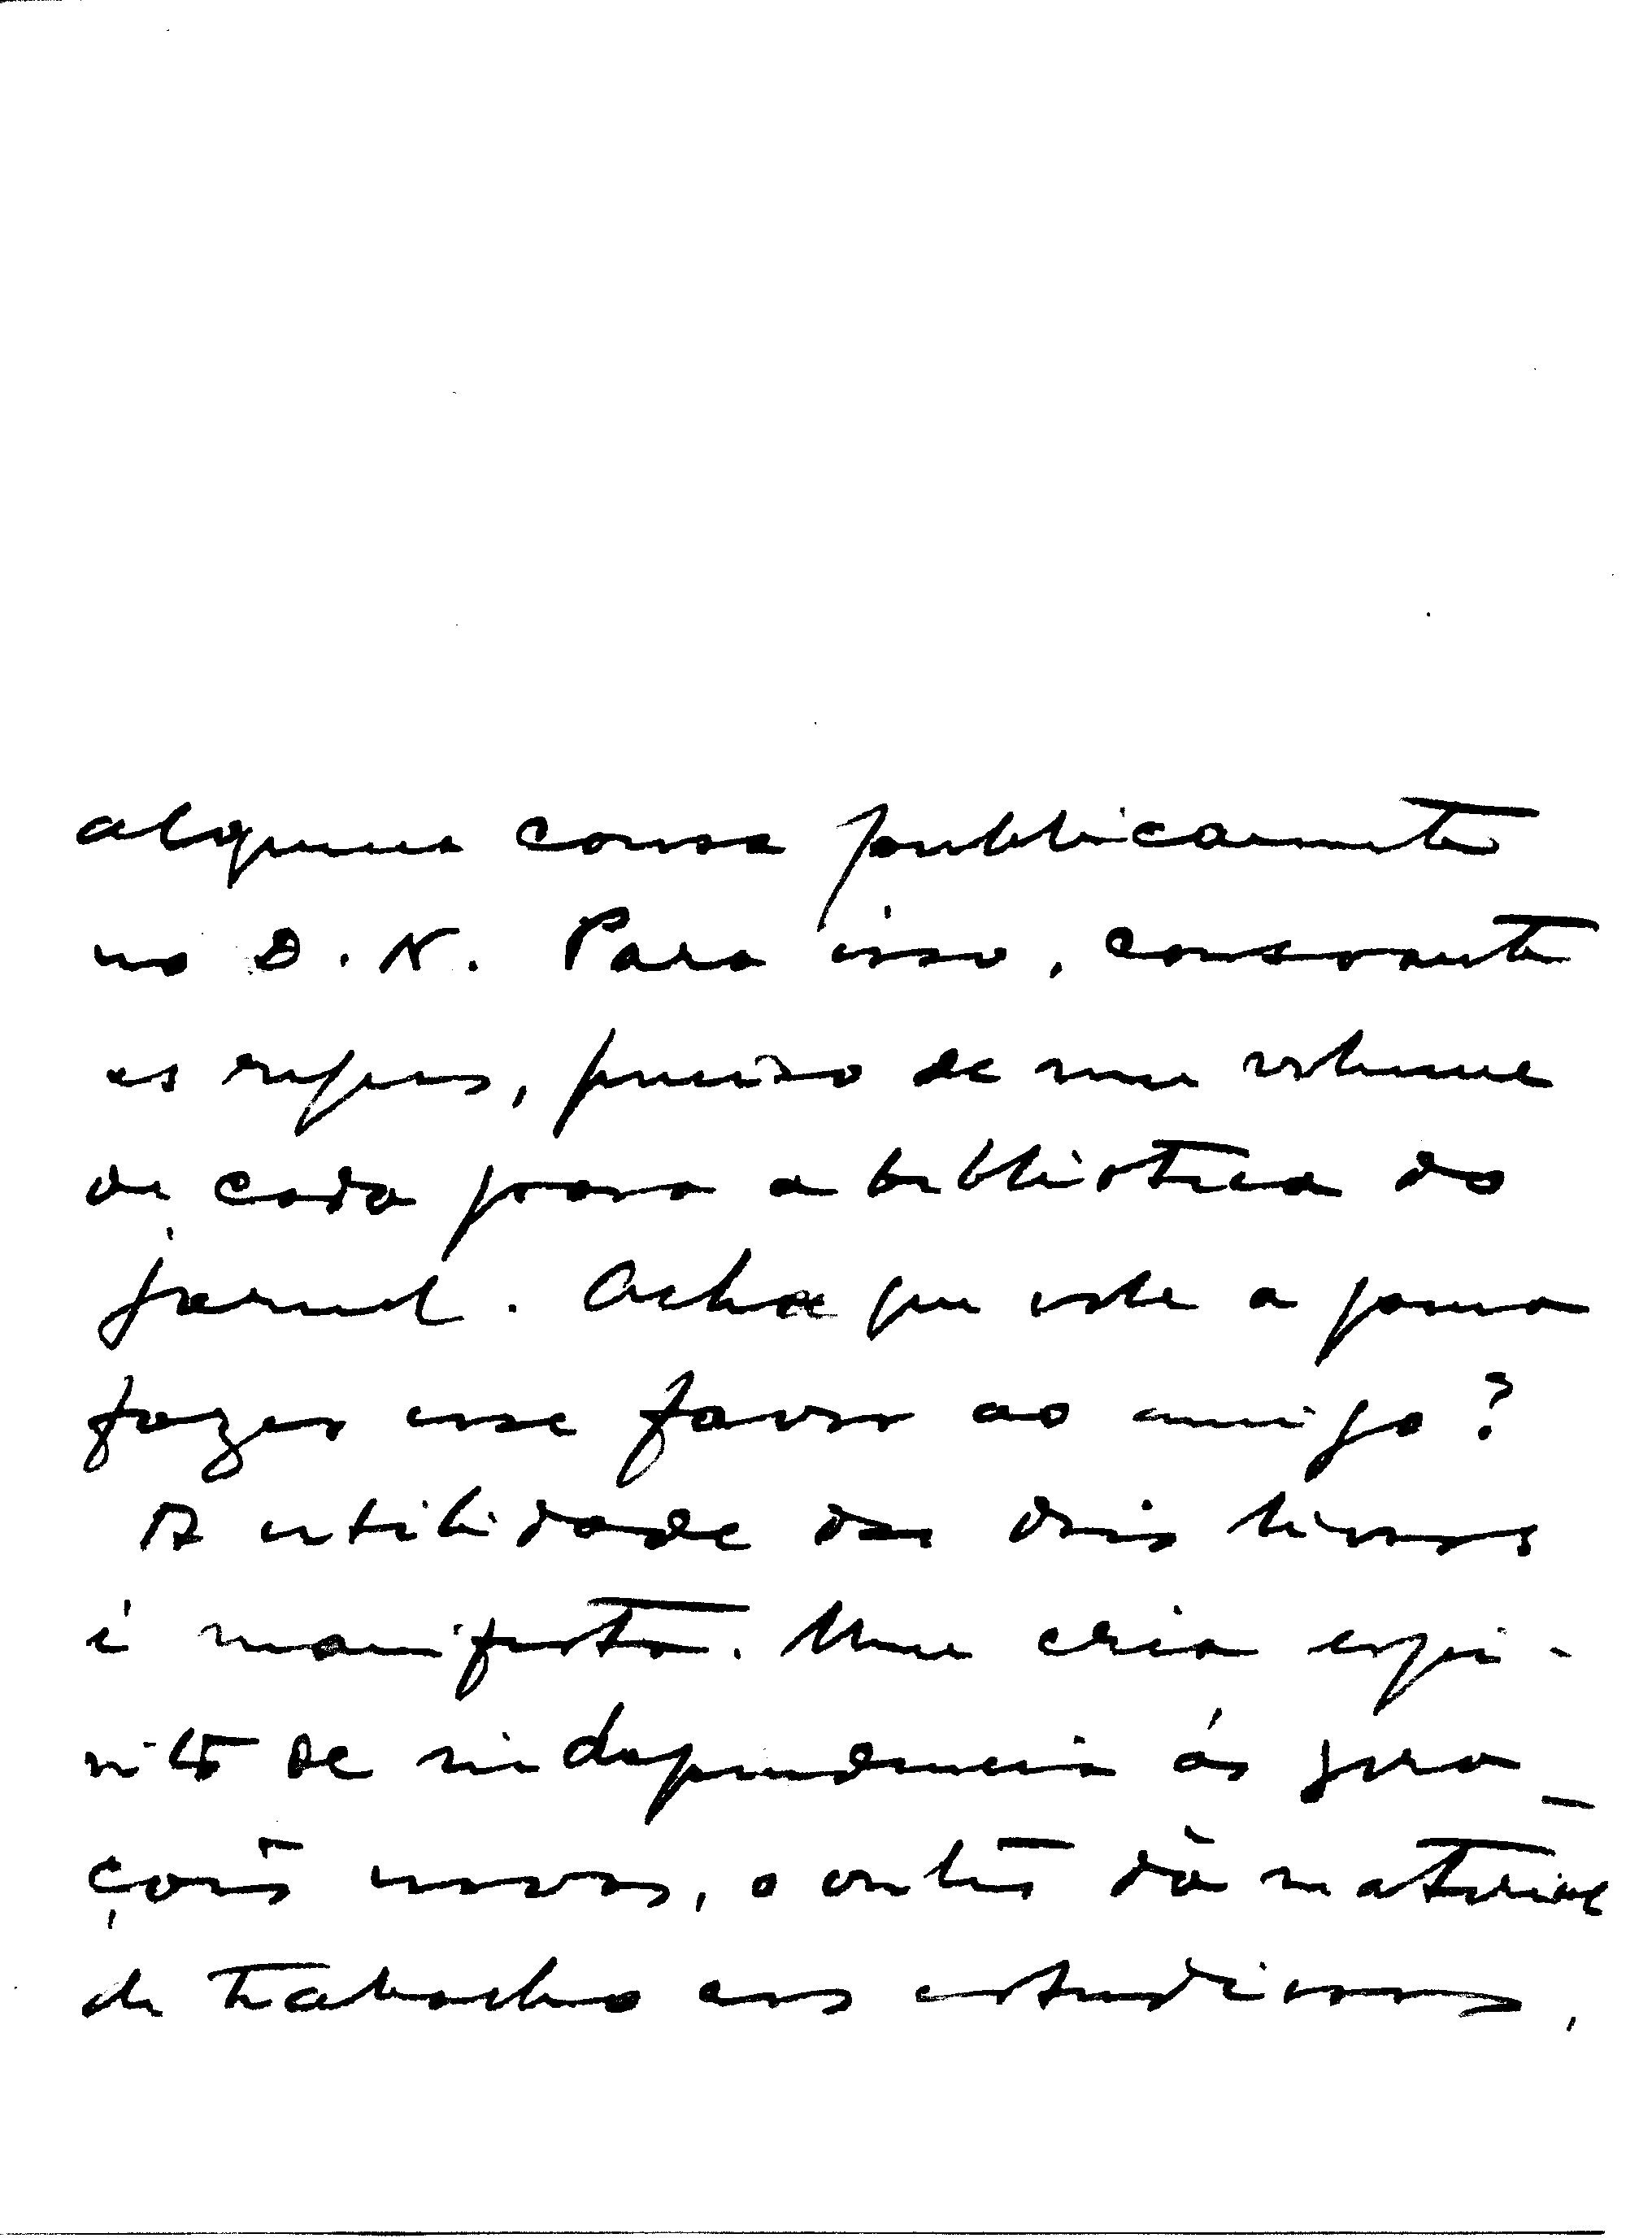 alguma cousa publicamente
no D. N. Para isso, consoante
as regras, preciso de um volume
de cada para a biblioteca do
jornal. Acha que vale a pena
fazer esse favor ao amigo?
A utilidade dos dois livros
é manifesta. Um cria espi-
rito de independencia ás gera-
ções novas, o outro dá material
de trabalho aos estudiosos,